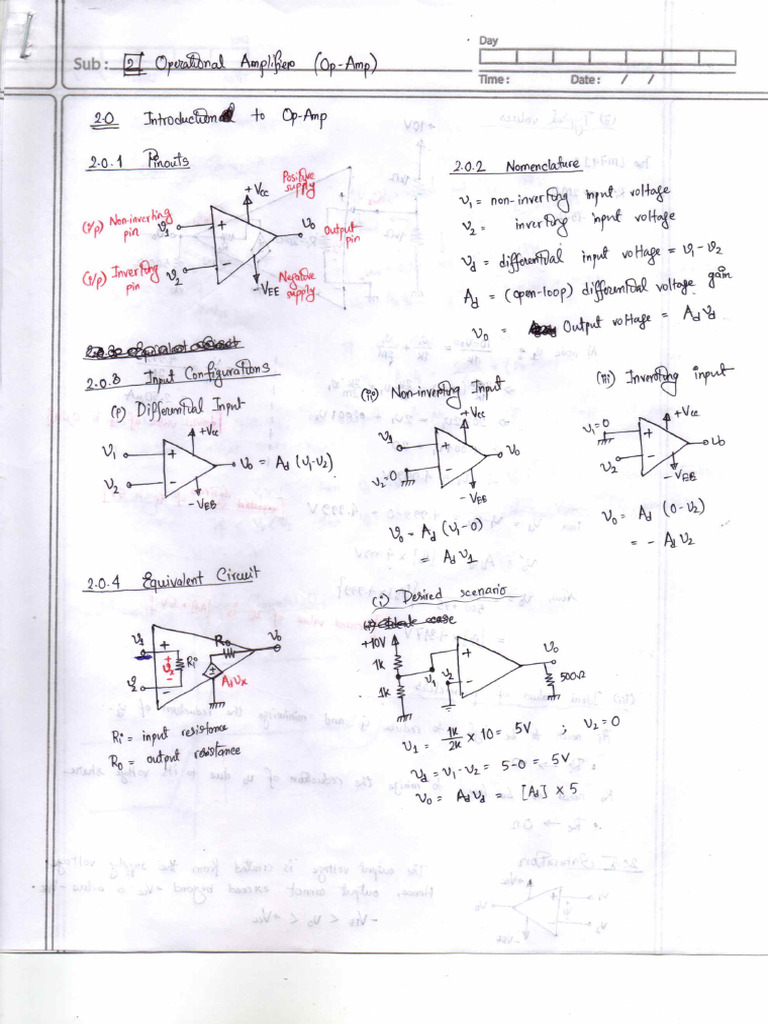 Day
Sub: 2 Operational Amplifiers (Op-Amp)
Time: Date: / /
2.0 Introduction to Op-Amp
2.0.1 Pinouts
+Vcc
Positive supply
(i/p) Non-inverting pin
v1
+
v0
Output pin
(i/p) Inverting pin
v2
-
-VEE
Negative supply
2.0.2 Nomenclature
v1 = non-inverting input voltage
v2 = inverting input voltage
vd = differential input voltage = v1-v2
Ad = (open-loop) differential voltage gain
v0 = Output voltage = Ad vd
2.0.3 Input Configurations
(i) Differential Input
+Vcc
v1
+
v0 = Ad (v1-v2)
v2
-
-VEE
(ii) Non-inverting Input
+Vcc
v1
+
v0
v2=0
-
-VEE
v0 = Ad (v1-0)
= Ad v1
(iii) Inverting input
+Vcc
v1=0
+
v0
v2
-
-VEE
v0 = Ad (0-v2)
= - Ad v2
2.0.4 Equivalent Circuit
v1
+
+
vx
-
Ri
R0
v0
±
Ad vx
v2
-
Ri = input resistance
R0 = output resistance
(i) Desired scenario
+10V
1k
1k
v1
+
v2
-
v0
500Ω
v1 = 1k/2k × 10 = 5V ; v2 = 0
vd = v1-v2 = 5-0 = 5V
v0 = Ad vd = [Ad] × 5